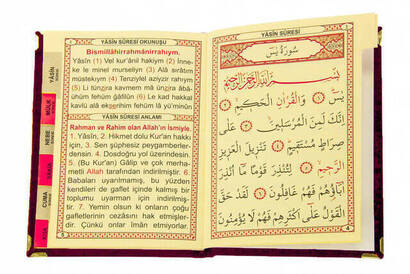 YÂSÎN SÛRESİ OKUNUŞU
Bismillâhirrahmânirrahıym.
Yâsîn (1) Vel kur'ânil hakiym (2) İnne-
ke le minel murseliyn (3) Alâ sırâtım
müstekıym (4) Tenziylel aziyzir rahıym
(5) Li tünzira kavmem mâ ünzira âbâ-
ühüm fehüm ğâfilûn (6) Le kad hakkal
kavlü alâ ekserihim fehüm lâ yü'minûn
YÂSÎN SÛRESİ ANLAMI
Rahman ve Rahim olan Allah'ın İsmiyle.
1. Yâsîn, 2. Hikmet dolu Kur'an hakkı
için, 3. Sen şüphesiz peygamberler-
densin. 4. Dosdoğru yol üzerindesin.
5. (Bu Kur'an) Gâlip ve çok merha-
metli Allah tarafından indirilmiştir. 6.
Babaları uyarılmamış, bu yüzden
kendileri de gaflet içinde kalmış bir
toplumu uyarman için indirilmiş-
tir. 7. Yemin olsun ki onların çoğu
gafletlerinin cezâsını hak etmişler-
dir. Çünkü onlar îmân etmiyorlar.
YÂSÎN
MÜLK
NEBE
CUMA
YÂSÎN SÛRESİ
سُورَةُ يٰسٓ
بِسْمِ اللّٰهِ الرَّحْمٰنِ الرَّحِيمِ
يٰسٓ ﴿١﴾ وَالْقُرْاٰنِ الْحَكِيمِ ﴿٢﴾
اِنَّكَ لَمِنَ الْمُرْسَلِينَ ﴿٣﴾ عَلٰى
صِرَاطٍ مُسْتَقِيمٍ ﴿٤﴾ تَنْزِيلَ الْعَزِيزِ
الرَّحِيمِ ﴿٥﴾ لِتُنْذِرَ قَوْمًا مَٓا اُنْذِرَ
اٰبَٓاؤُهُمْ فَهُمْ غَافِلُونَ ﴿٦﴾ لَقَدْ حَقَّ
الْقَوْلُ عَلٰٓى اَكْثَرِهِمْ فَهُمْ لَا يُؤْمِنُونَ